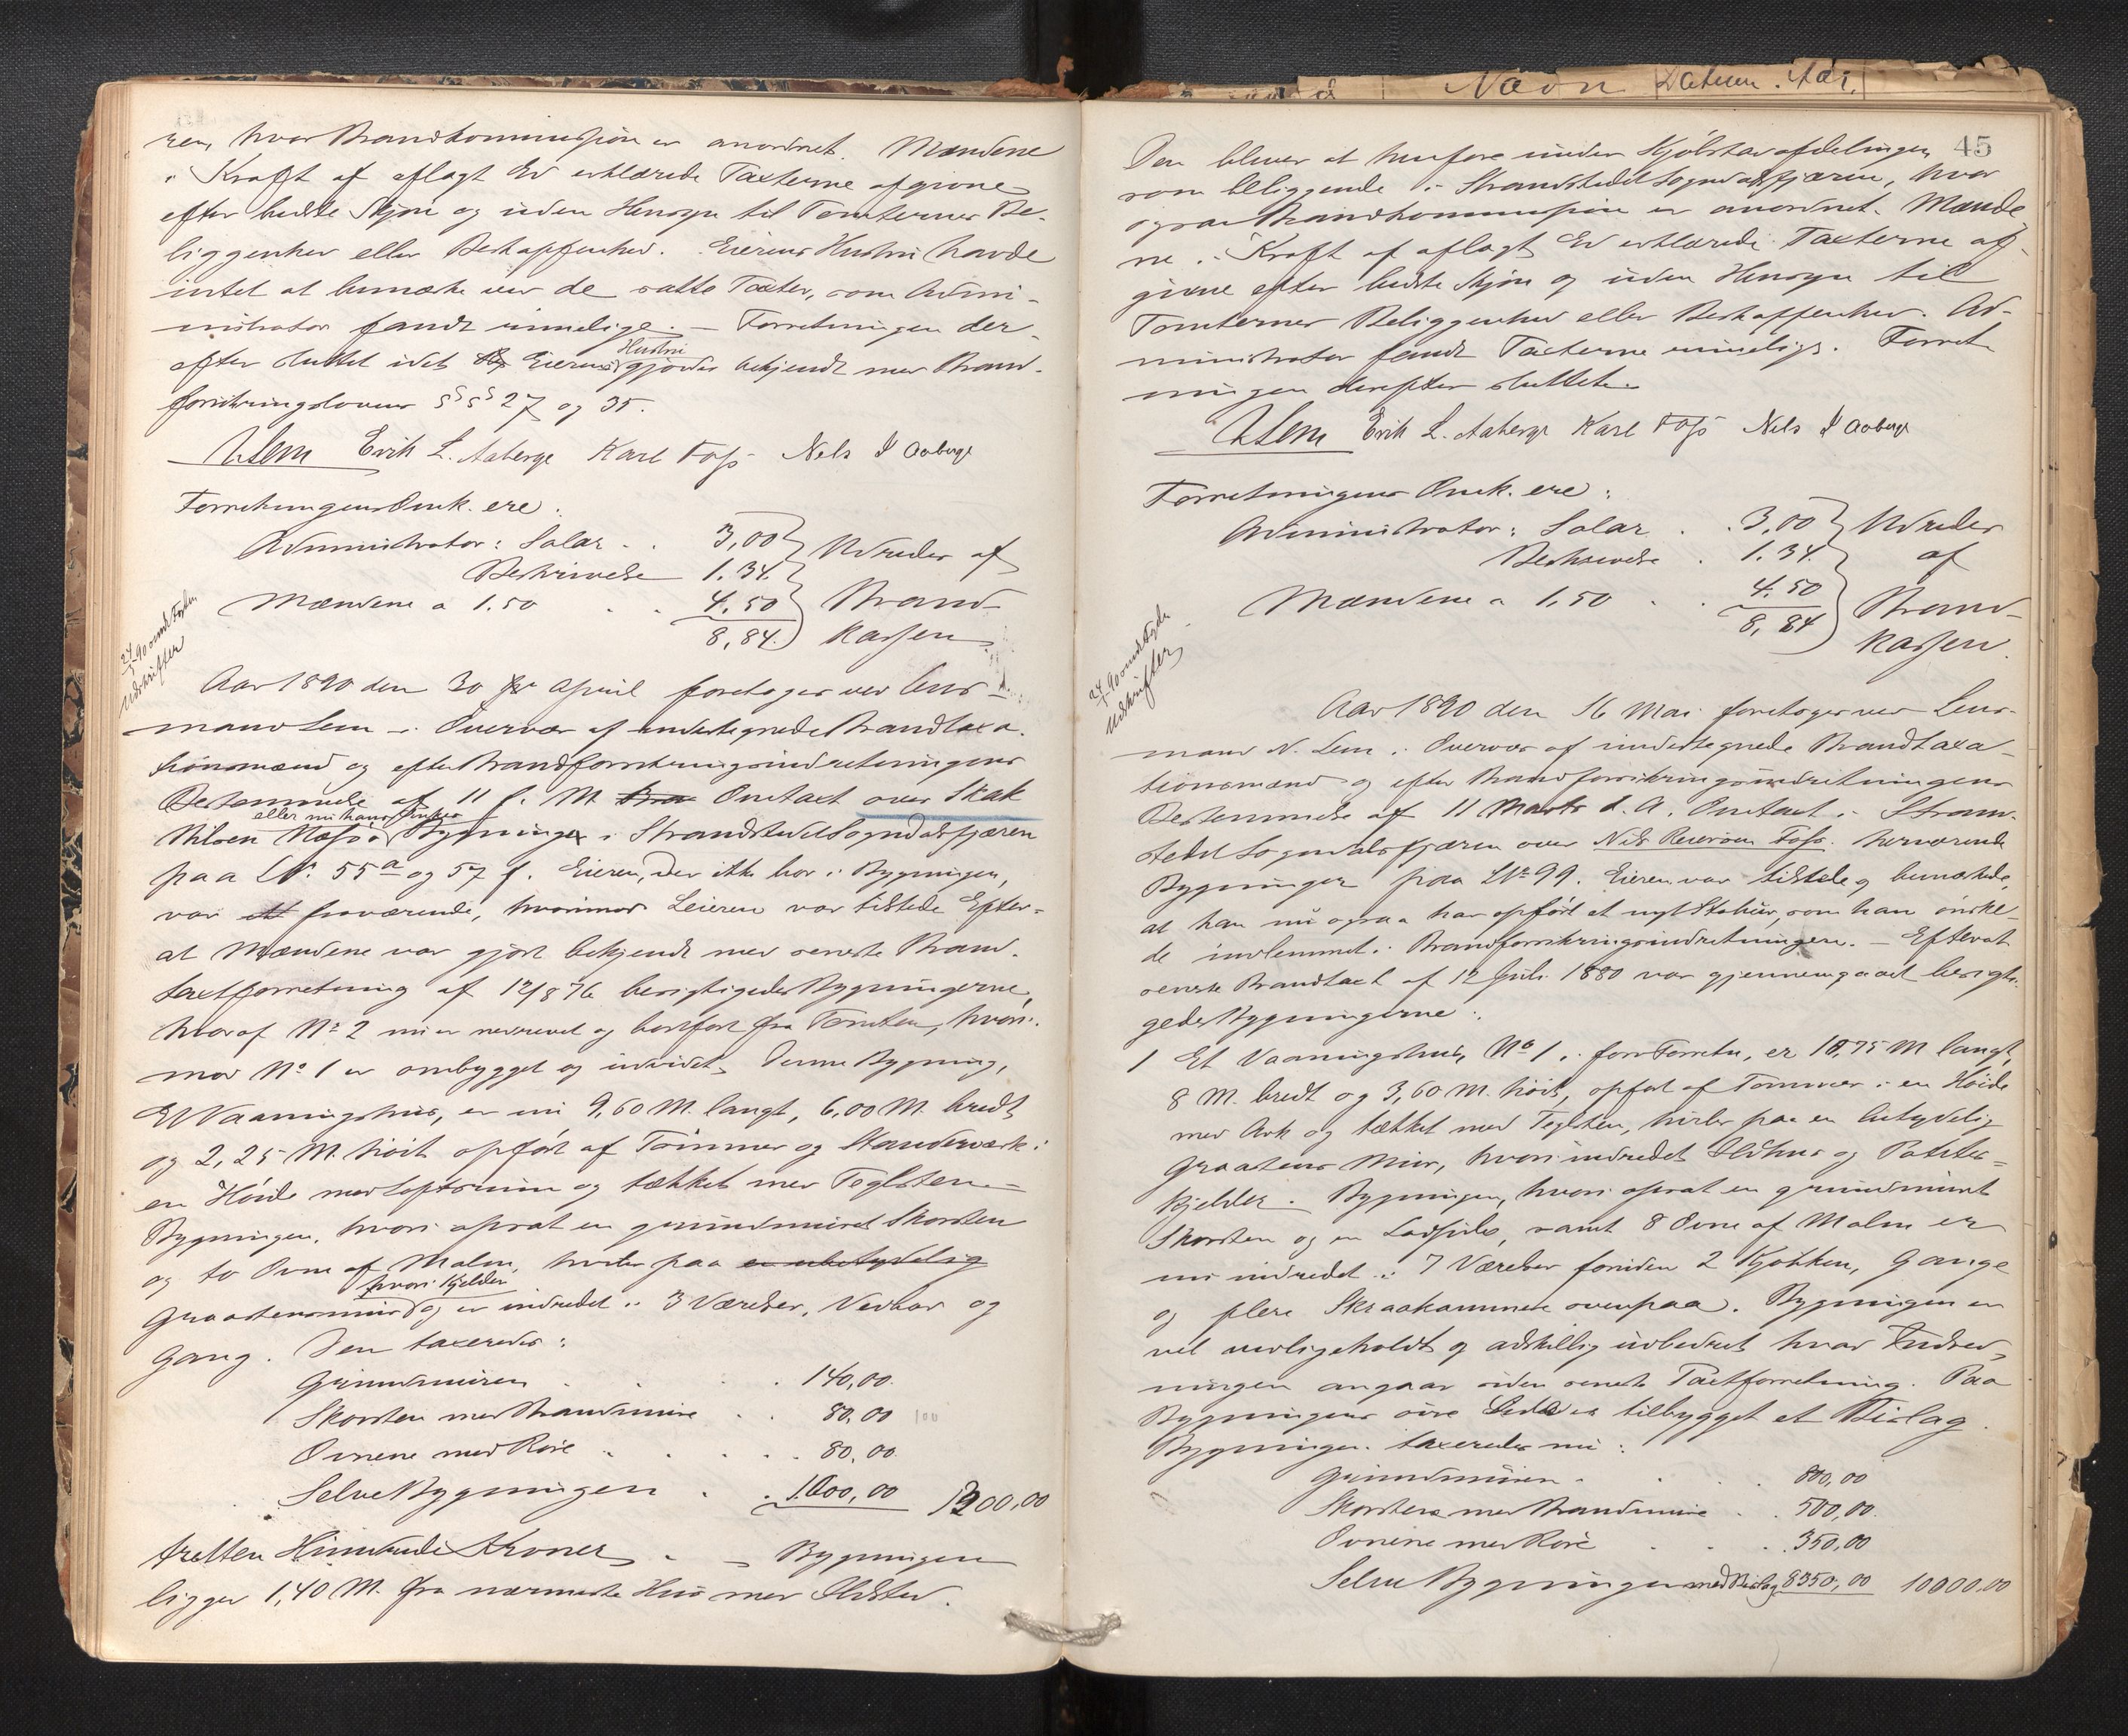 ren, hvor Brandkommission er anordnet. Mændene
i Kraft af aflagt Ed erklærede Taxterne afgivne
efter bedste Skjøn og uden Hensyn til Tomternes Be-
liggenhed eller Beskaffenhed. Eierens Hustru havde
intet at bemærke ved de satte Taxter, som Admi-
nistrator fandt rimelige. — Forretningen der-
efter sluttet idet Eierens Hustru gjordes bekjendt med Brand-
forsikringslovens §§ 27 og 35.
NLem Erik L. Aaberge Karl Foss Nels I Aaberge
Forretningens Omk. ere:
Administrator: Salar . . 3,00 } Udredes af
Beskrivelse 1.34.
Mændene a 1.50 . . 4,50 } Brand-
8,84. kassen.
24/5 90 omd. Udskrifter
Aar 1890 den 30 April foretoges ved Lens-
mand Lem i Overvær af undertegnede Brandtaxa-
tionsmænd og efter Brandforsikringsindretningens
Bestemmelse af 11 f. M. Omtaxt over Skak
Nilsen Næss's eller nu hans Enkes Bygninger i Strandstedet Sogndalsfjæren
paa LN: 55a og 57 f. Eieren, der ikke bor i Bygningen,
var fraværende, hvorimod Leieren var tilstede Efter-
at Mændene var gjort bekjendt med seneste Brand-
taxtforretning af 12/8 76 besigtigedes Bygningerne,
hvoraf No 2 nu er nedrevet og bortført fra Tomten, hvori-
mod No 1 er ombygget og udvidet. Denne Bygning,
Et Vaaningshus, er nu 9,60 M. langt, 6,00 M. bredt
og 2,25 M. høit opført af Tømmer og Standerværk i
en Høide med Loftsrum og tækket med Teglsten. —
Bygningen, hvori opsat en grundmuret Skorsten
og to Ovne af Malm, hviler paa en ubetydelig
Graastensmur hvori Kjelder og er indredet i 3 Værelser, Vedbod og
Gang. Den taxeredes:
Grundmuren . . . . 140,00.
Skorsten med Brandmure . . 80,00 100
Ovnene med Røre . . . . 80,00
Selve Bygningen . . 1000,00 1300,00
tretten Hundrede Kroner. — Bygningen
ligger 1,40 M. fra nærmeste Hus med Ildsted.
Nævn Datum. Aar.
45
Den bliver at henføre under Kjøbstadafdelingen
som beliggende i Strandstedet Sogndalsfjæren, hvor
ogsaa Brandkommission er anordnet. Mænde
ne i Kraft af aflagt Ed erklærede Taxterne af-
givne efter bedste Skjøn og uden Hensyn til
Tomternes Beliggenhed eller Beskaffenhed. Ad-
ministrator fandt Taxterne rimelige. Forret-
ningen derefter sluttet.
NLem Erik L. Aaberge Karl Foss Nels I Aaberge
Forretningens Omk. ere:
Administrator: Salar . . 3,00 } Udredes
Beskrivelse . 1.34. af
Mændene a 1,50 . . 4,50 } Brand-
8,84 kassen.
24/5 90 omd. Udskrifter
Aar 1890 den 16 Mai foretoges ved Lens-
mand N. Lem i Overvær af undertegnede Brandtaxa-
tionsmænd og efter Brandforsikringsindretningens
Bestemmelse af 11 Marts d. A. Omtaxt i Strand-
stedet Sogndalsfjæren over Nils Foss. herværende
Bygninger paa LNo 99. Eieren var tilstede og bemærkede,
at han nu ogsaa har opført et nyt Stabur, som han ønske-
de indlemmet i Brandforsikringsindretningen. — Efterat
seneste Brandtaxt af 12 Juli 1880 var gjennemgaaet besigti-
gedes Bygningerne:
1 Et Vaaningshus, No 1 i forr. Forretn., er 18,75 M langt,
8 M. bredt og 3,60 M. høit, opført af Tømmer i en Høide
med Ark og tækket med Teglsten, hviler paa en betydelig
Graastens Mur, hvori indredet Ildhus og Potetes-
kjelder. Bygningen, hvori opsat en grundmuret
Skorsten og en Ladpibe, samt 8 Ovne af Malm er
nu indredet i 7 Værelser foruden 2 Kjøkken, Gange
og flere Skraakammere ovenpaa. Bygningen er
vel vedligeholdt og adskillig udbedret hvad Indred-
ningen angaar siden seneste Taxtforretning. Paa
Bygningens øvre Side er tilbygget et Bislag.
Bygningen taxeredes nu:
Grundmuren . . . . 800,00
Skorstene med Brandmure . . 500,00.
Ovnene med Røre . . . 350,00
Selve Bygningen med Bislag 8350,00 10000,00